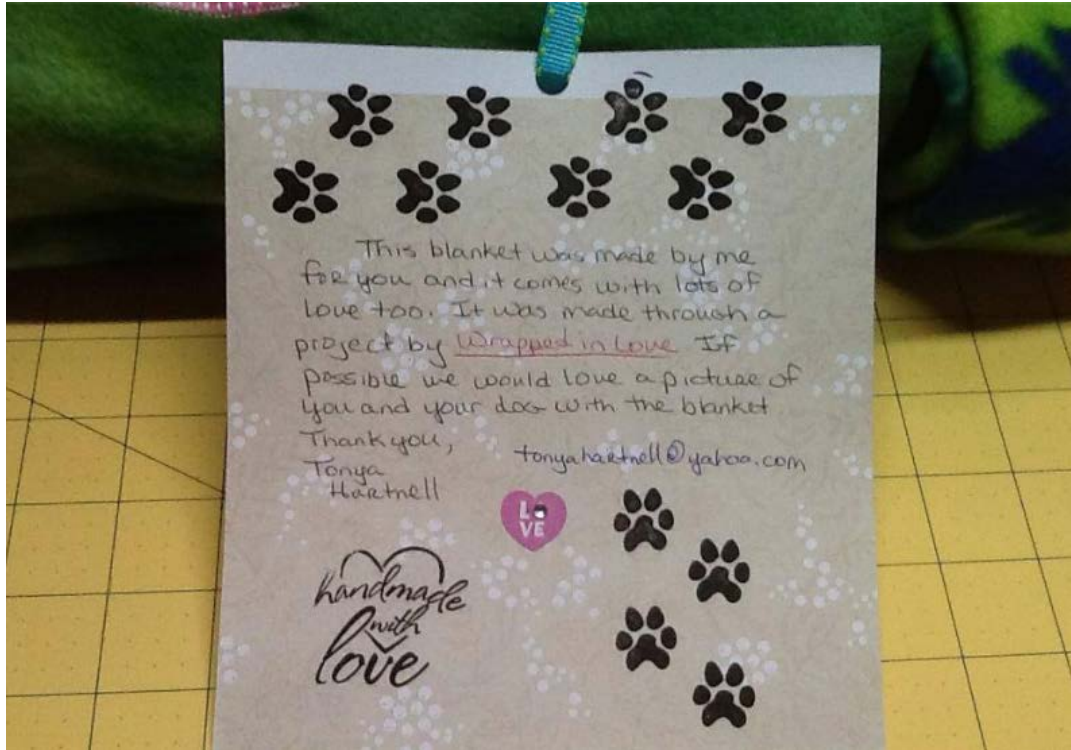 This blanket was made by me
for you and it comes with lots of
love too. It was made through a
project by Wrapped in Love If
possible we would love a picture of
you and your dog with the blanket
Thank you,
tonyahartnell@yahoo.com
Tonya
Hartnell
LOVE
handmade
with
love